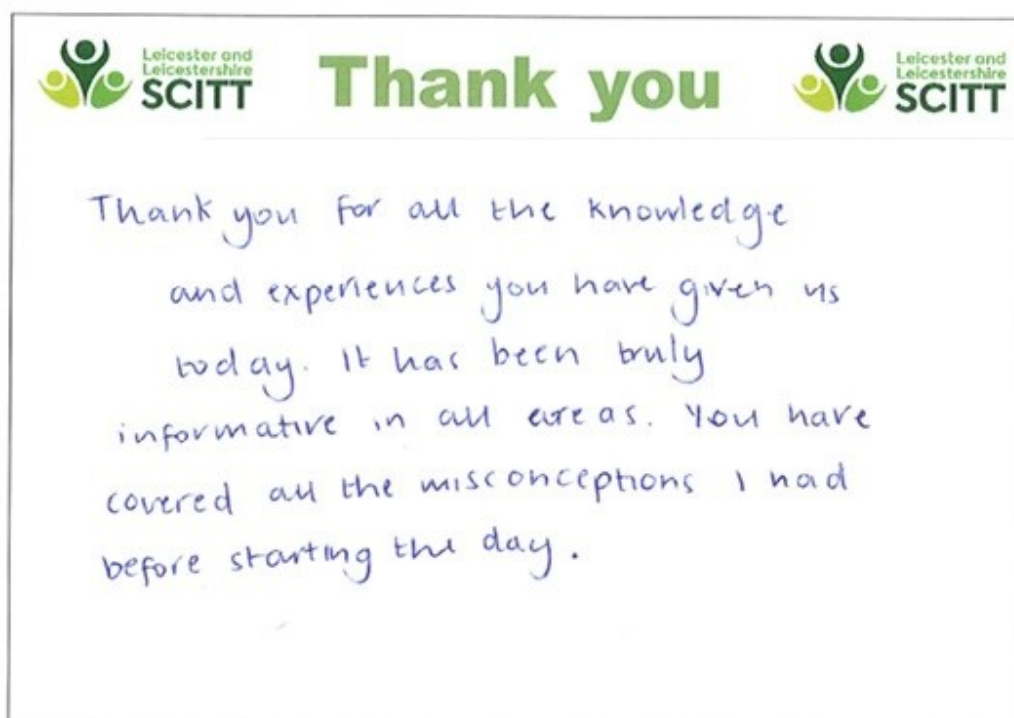 Leicester and
Leicestershire
SCITT
Thank you
Leicester and
Leicestershire
SCITT
Thank you for all the knowledge
and experiences you have given us
today. It has been truly
informative in all areas. You have
covered all the misconceptions I had
before starting the day.